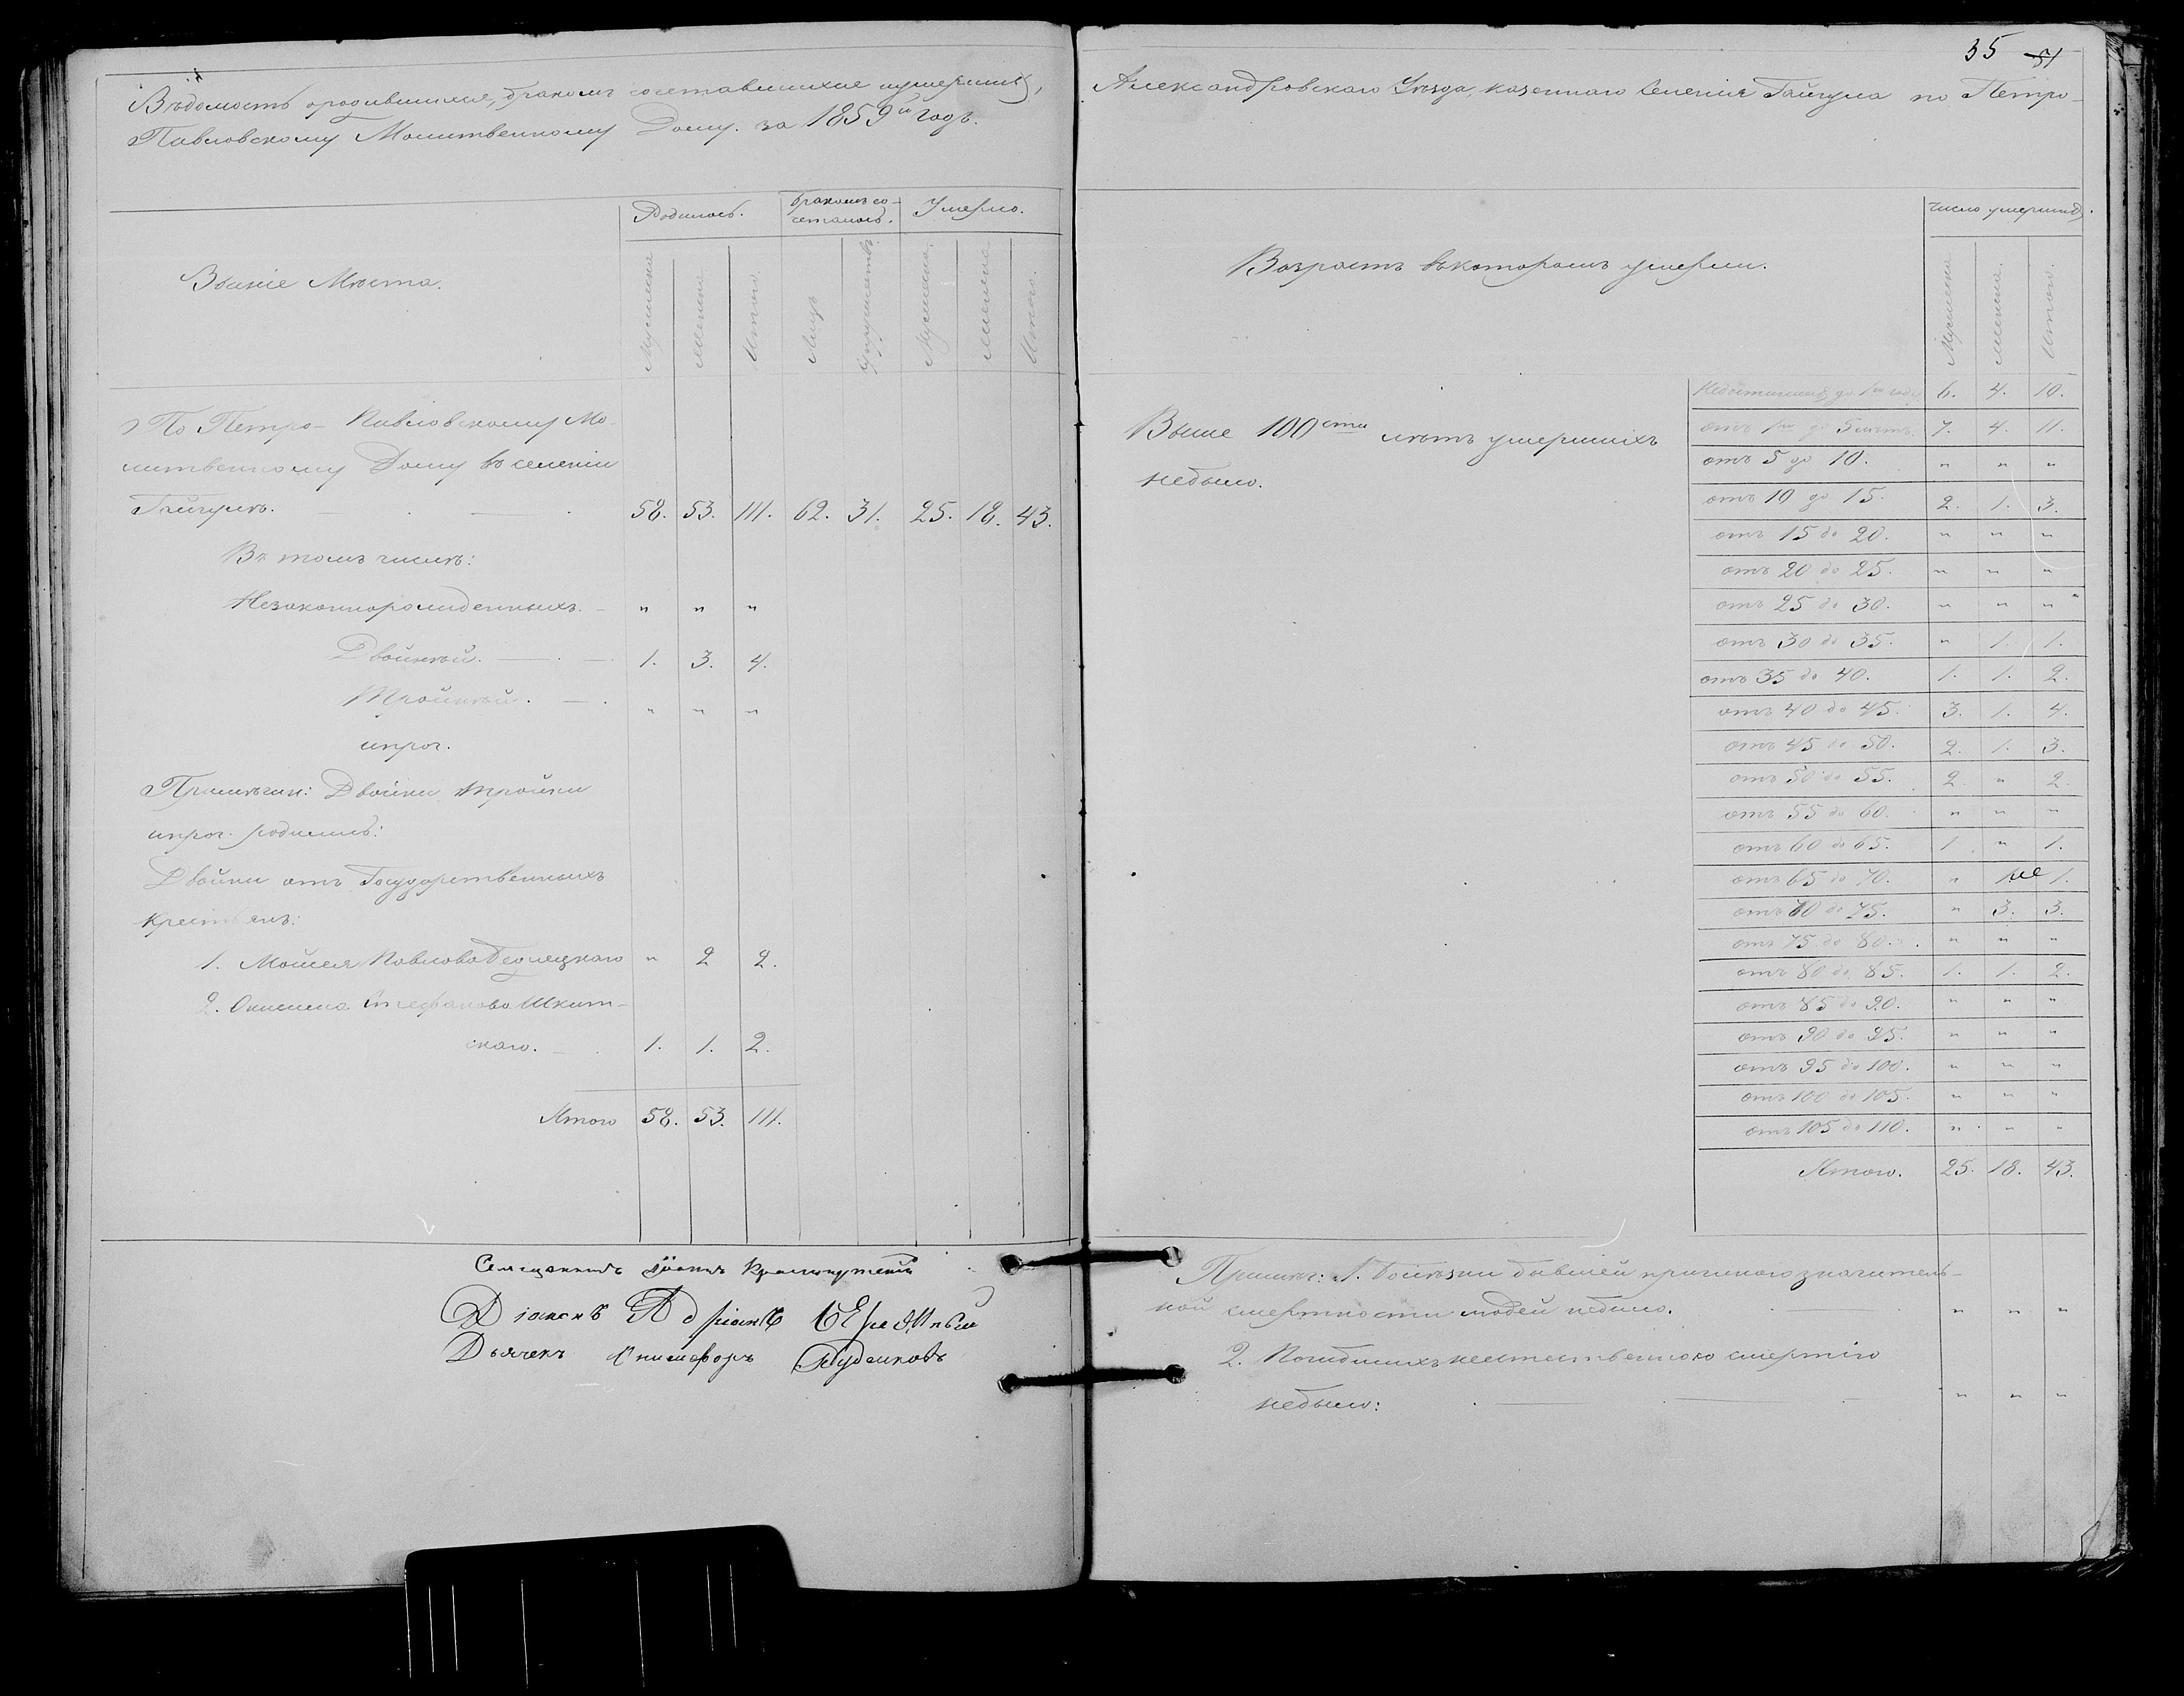 35 51
Вѣдомость ородившихся, бракомъ сочетавшихся иумершихъ, Александровскаго Уезда, казеннаго селения Гайчула по Петро-
Павловскому Молитвенному Дому. за 1859й годъ.
Званіе Мѣста.
Родилось.
Бракомъ со-
четалось.
Умерло.
Мужеска
Женска
Итого.
Лицъ
Супружествъ.
Мужеска.
Женска
Итого.
По Петро-Павловскому Мо-
литвенному Дому въ селеніи
Гайчулѣ. 58. 53. 111. 62. 31. 25. 18. 43.
Въ томъ числѣ:
Незаконнорожденныхъ. " " "
Двойней. 1. 3. 4.
Тройней. " " "
ипроч.
Примѣчан: Двойни тройни
ипроч. родились:
Двойни отъ Государственныхъ
Крестьянъ:
1. Моисея Павлова " 2 2.
2. Стефанова Шкит-
скаго. 1. 1. 2.
Итого 58. 53. 111.
Священникъ Іоаннъ
Діаконъ Адріанъ
Дьячекъ Онисифоръ
Возрастъ вкоторомъ умерли.
Число умершихъ.
Мужеска
Женска.
Итого.
Выше 100ста лѣтъ умершихъ
небыло.
Недостигшихъ до 1го года 6. 4. 10.
отъ 1го до 5 лѣтъ. 7. 4. 11.
отъ 5 до 10. " " "
отъ 10 до 15. 2. 1. 3.
отъ 15 до 20. " " "
отъ 20 до 25. " " "
отъ 25 до 30. " " "
отъ 30 до 35. " 1. 1.
отъ 35 до 40. 1. 1. 2.
отъ 40 до 45. 3. 1. 4.
отъ 45 до 50. 2. 1. 3.
отъ 50 до 55. 2. " 2.
отъ 55 до 60. " " "
отъ 60 до 65. 1. " 1.
отъ 65 до 70. " 1. 1.
отъ 70 до 75. " 3. 3.
отъ 75 до 80. " " "
отъ 80 до 85. 1. 1. 2.
отъ 85 до 90. " " "
отъ 90 до 95. " " "
отъ 95 до 100. " " "
отъ 100 до 105. " " "
отъ 105 до 110. " " "
Итого. 25. 18. 43.
Примѣч: 1. Болѣзни бывшей причиною значитель-
ной смертности людей небыло. " " "
2. Погибшихъ неестественною смертію
небыло: " " "